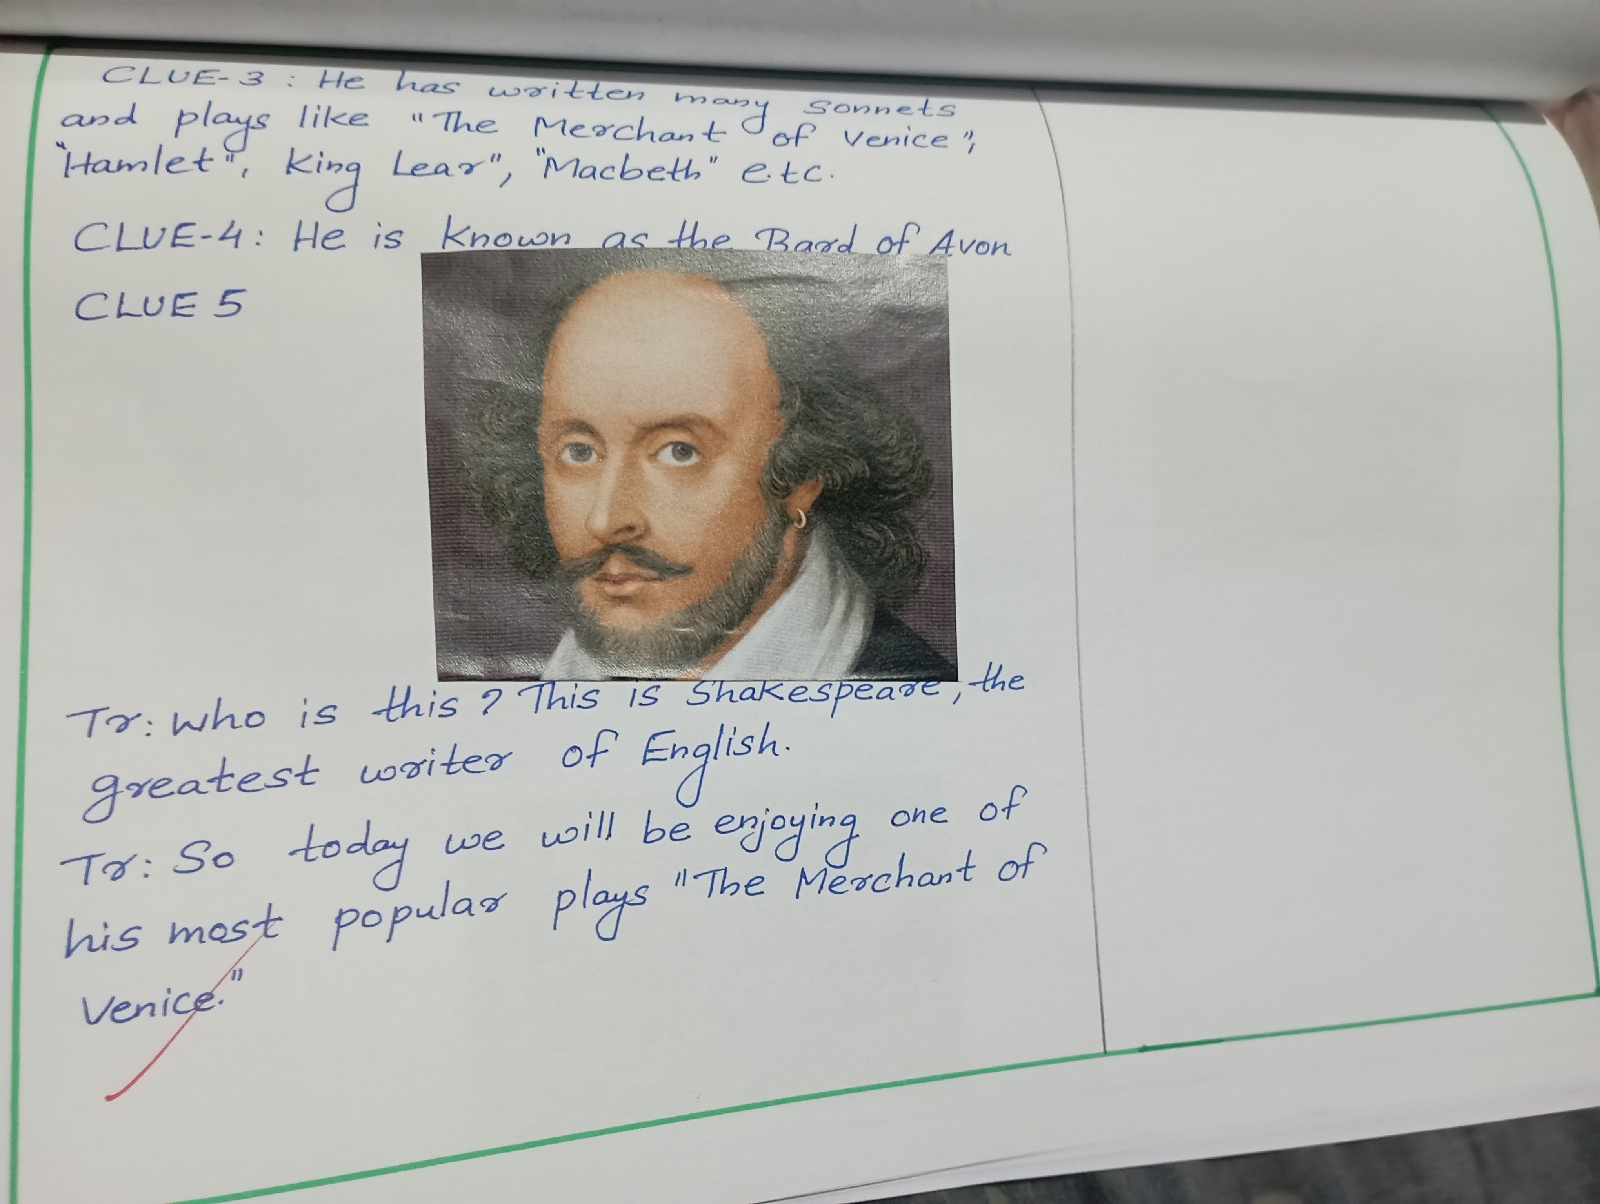 CLUE-3 : He has written many sonnets
and plays like "The Merchant of Venice",
"Hamlet", King Lear", "Macbeth" e.tc.
CLUE-4: He is known as the Bard of Avon
CLUE 5
Tr: Who is this? This is Shakespeare, the
greatest writer of English.
Tr: So today we will be enjoying one of
his most popular plays "The Merchant of
Venice."